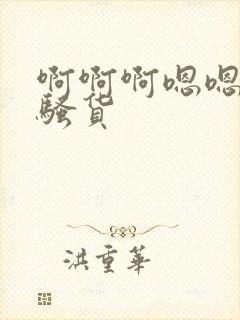 啊啊啊嗯嗯
骚货
洪重華